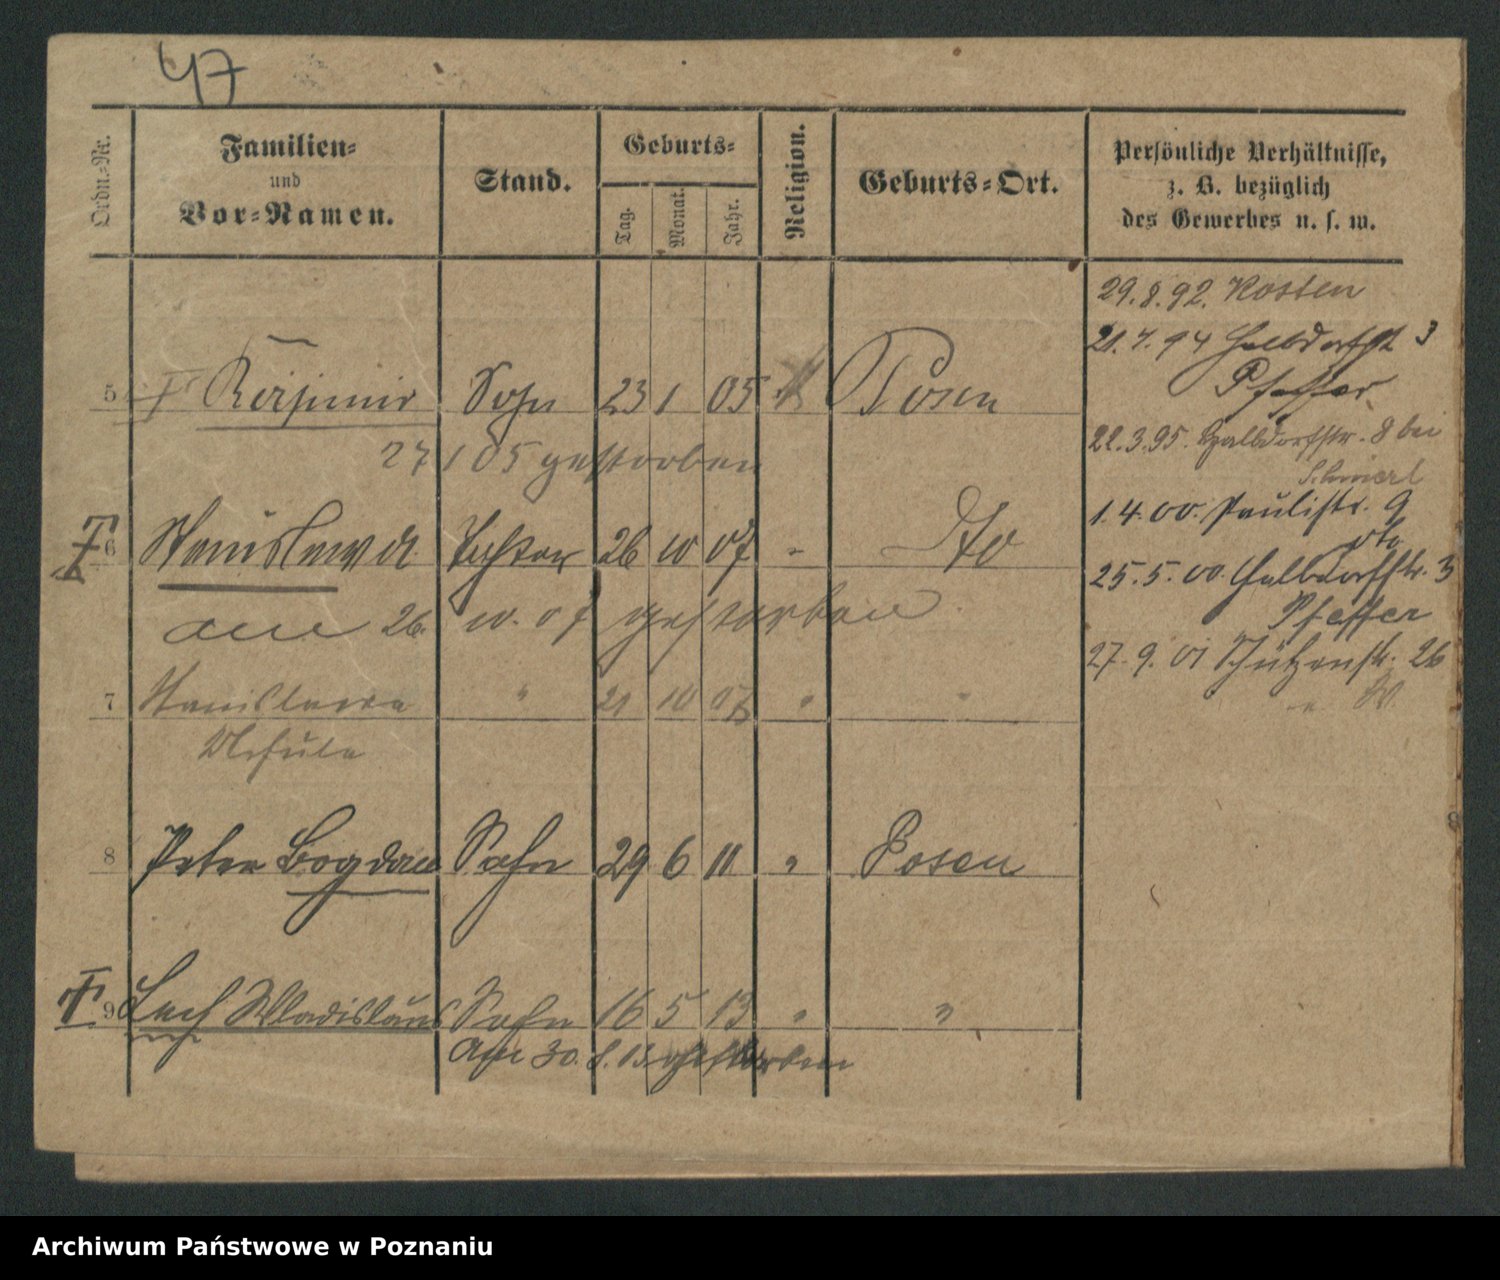 47
Ordn.-Nr.
Familien-
und
Vor-Namen.
Stand.
Geburts-
Tag.
Monat.
Jahr.
Religion.
Geburts-Ort.
Persönliche Verhältnisse,
z. B. bezüglich
des Gewerbes u. s. w.
29.8.92. Kosten
21.7.94 Halbdorfst 3
Pfeffer
22.3.95. Halbdorfstr. 8 bei
1.4.00. Paulistr. 9
25.5.00. Halbdorfstr. 3
Pfeffer
27.9.01 Schützenstr. 26
5 Kasimir Sohn 23 1 05 k Posen
27 1 05 gestorben
6 Stanislawa Tochter 26 10 07 " do
am 26. 10. 07 gestorben
7 Stanislawa " 21 10 07 " "
Ursula
8 Peter Bogdan Sohn 29 6 11 " Posen
9 Lech Wladislaus Sohn 16 5 13 " "
Lech
am 30. 8. 13 gestorben
Archiwum Państwowe w Poznaniu